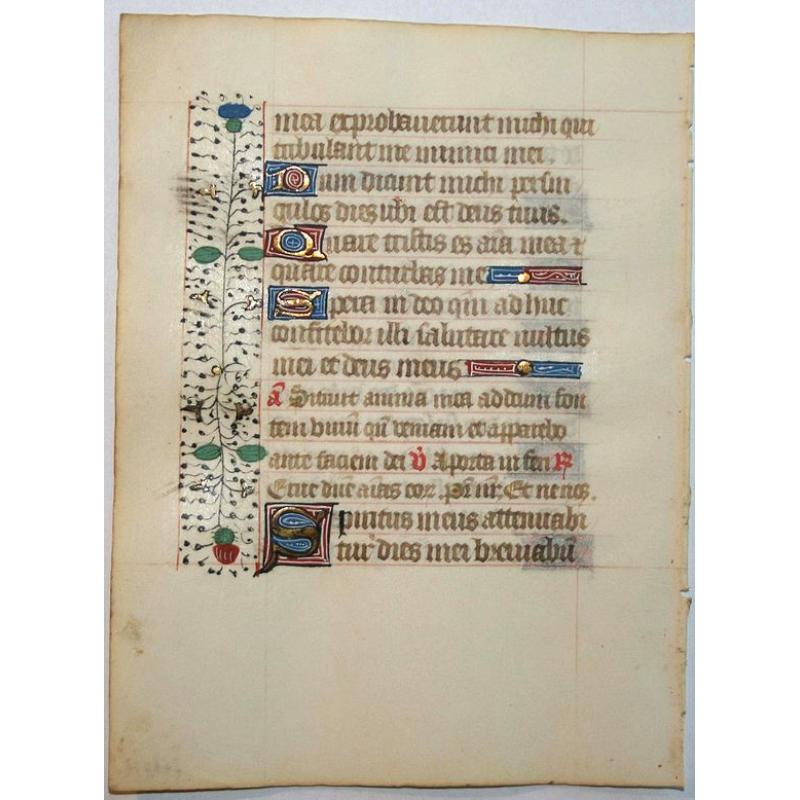 mea exprobauerunt michi qui
tribulant me inimici mei.
Dum dicunt michi per sin
gulos dies ubi est deus tuus.
Quare tristis es aīa mea ⁊
quare conturbas me
Spera in deo qm̄ adhuc
confitebor illi salutare uultus
mei et deus meus
Ā Sitiuit anima mea ad deum fon
tem uiuū qn̄ ueniam et apparebo
ante faciem dei V̄ A porta inferi R̄
Erue dn̄e aīas eor. Pr̄ nr̄. Et ne nos.
Spiritus meus attenuabi
tur dies mei breuiabū